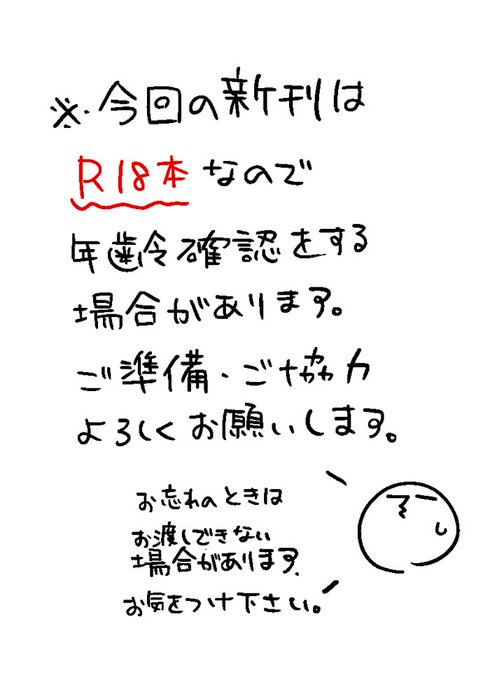 ※今回の新刊は
R18本なので
年齢確認をする
場合があります。
ご準備・ご協力
よろしくお願いします。
お忘れのときは
お渡しできない
場合があります.
お気をつけ下さい。